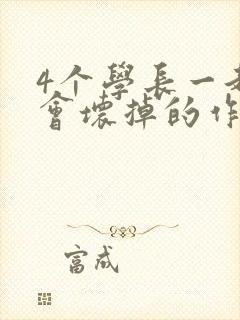 4个學長一
會壞掉的作
富成